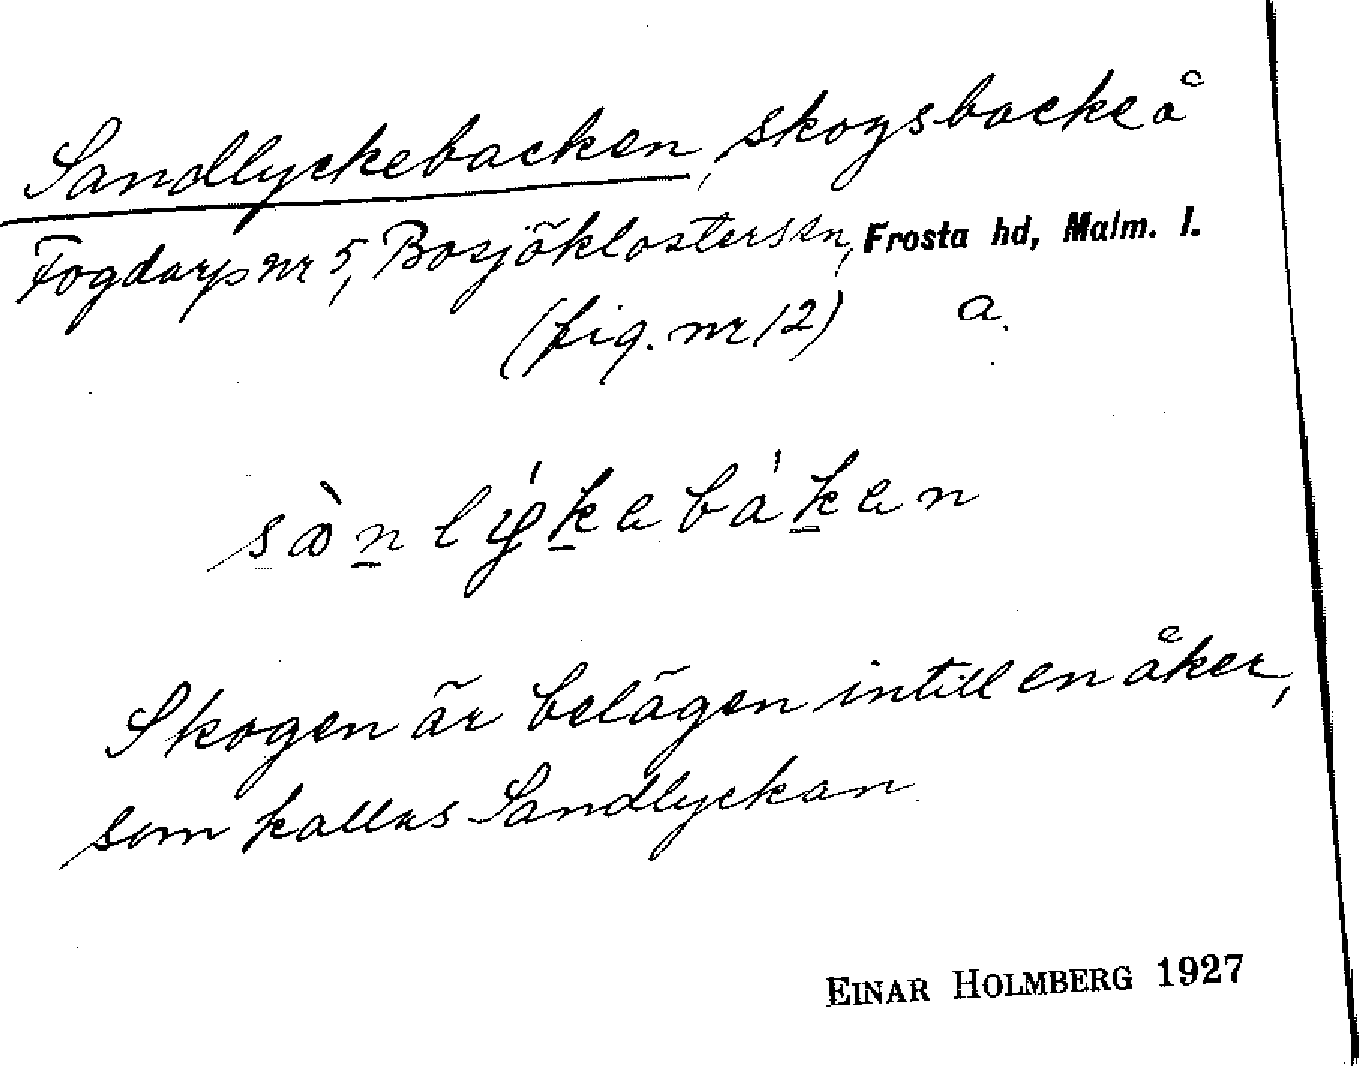 Sandlyckebacken, skogsbacke å
Fogdarp nr 5, Bosjöklosters sn, Frosta hd, Malm. l.
(fig. nr 12) a.
Skogen är belägen intill en åker,
som kallas Sandlyckan
EINAR HOLMBERG 1927